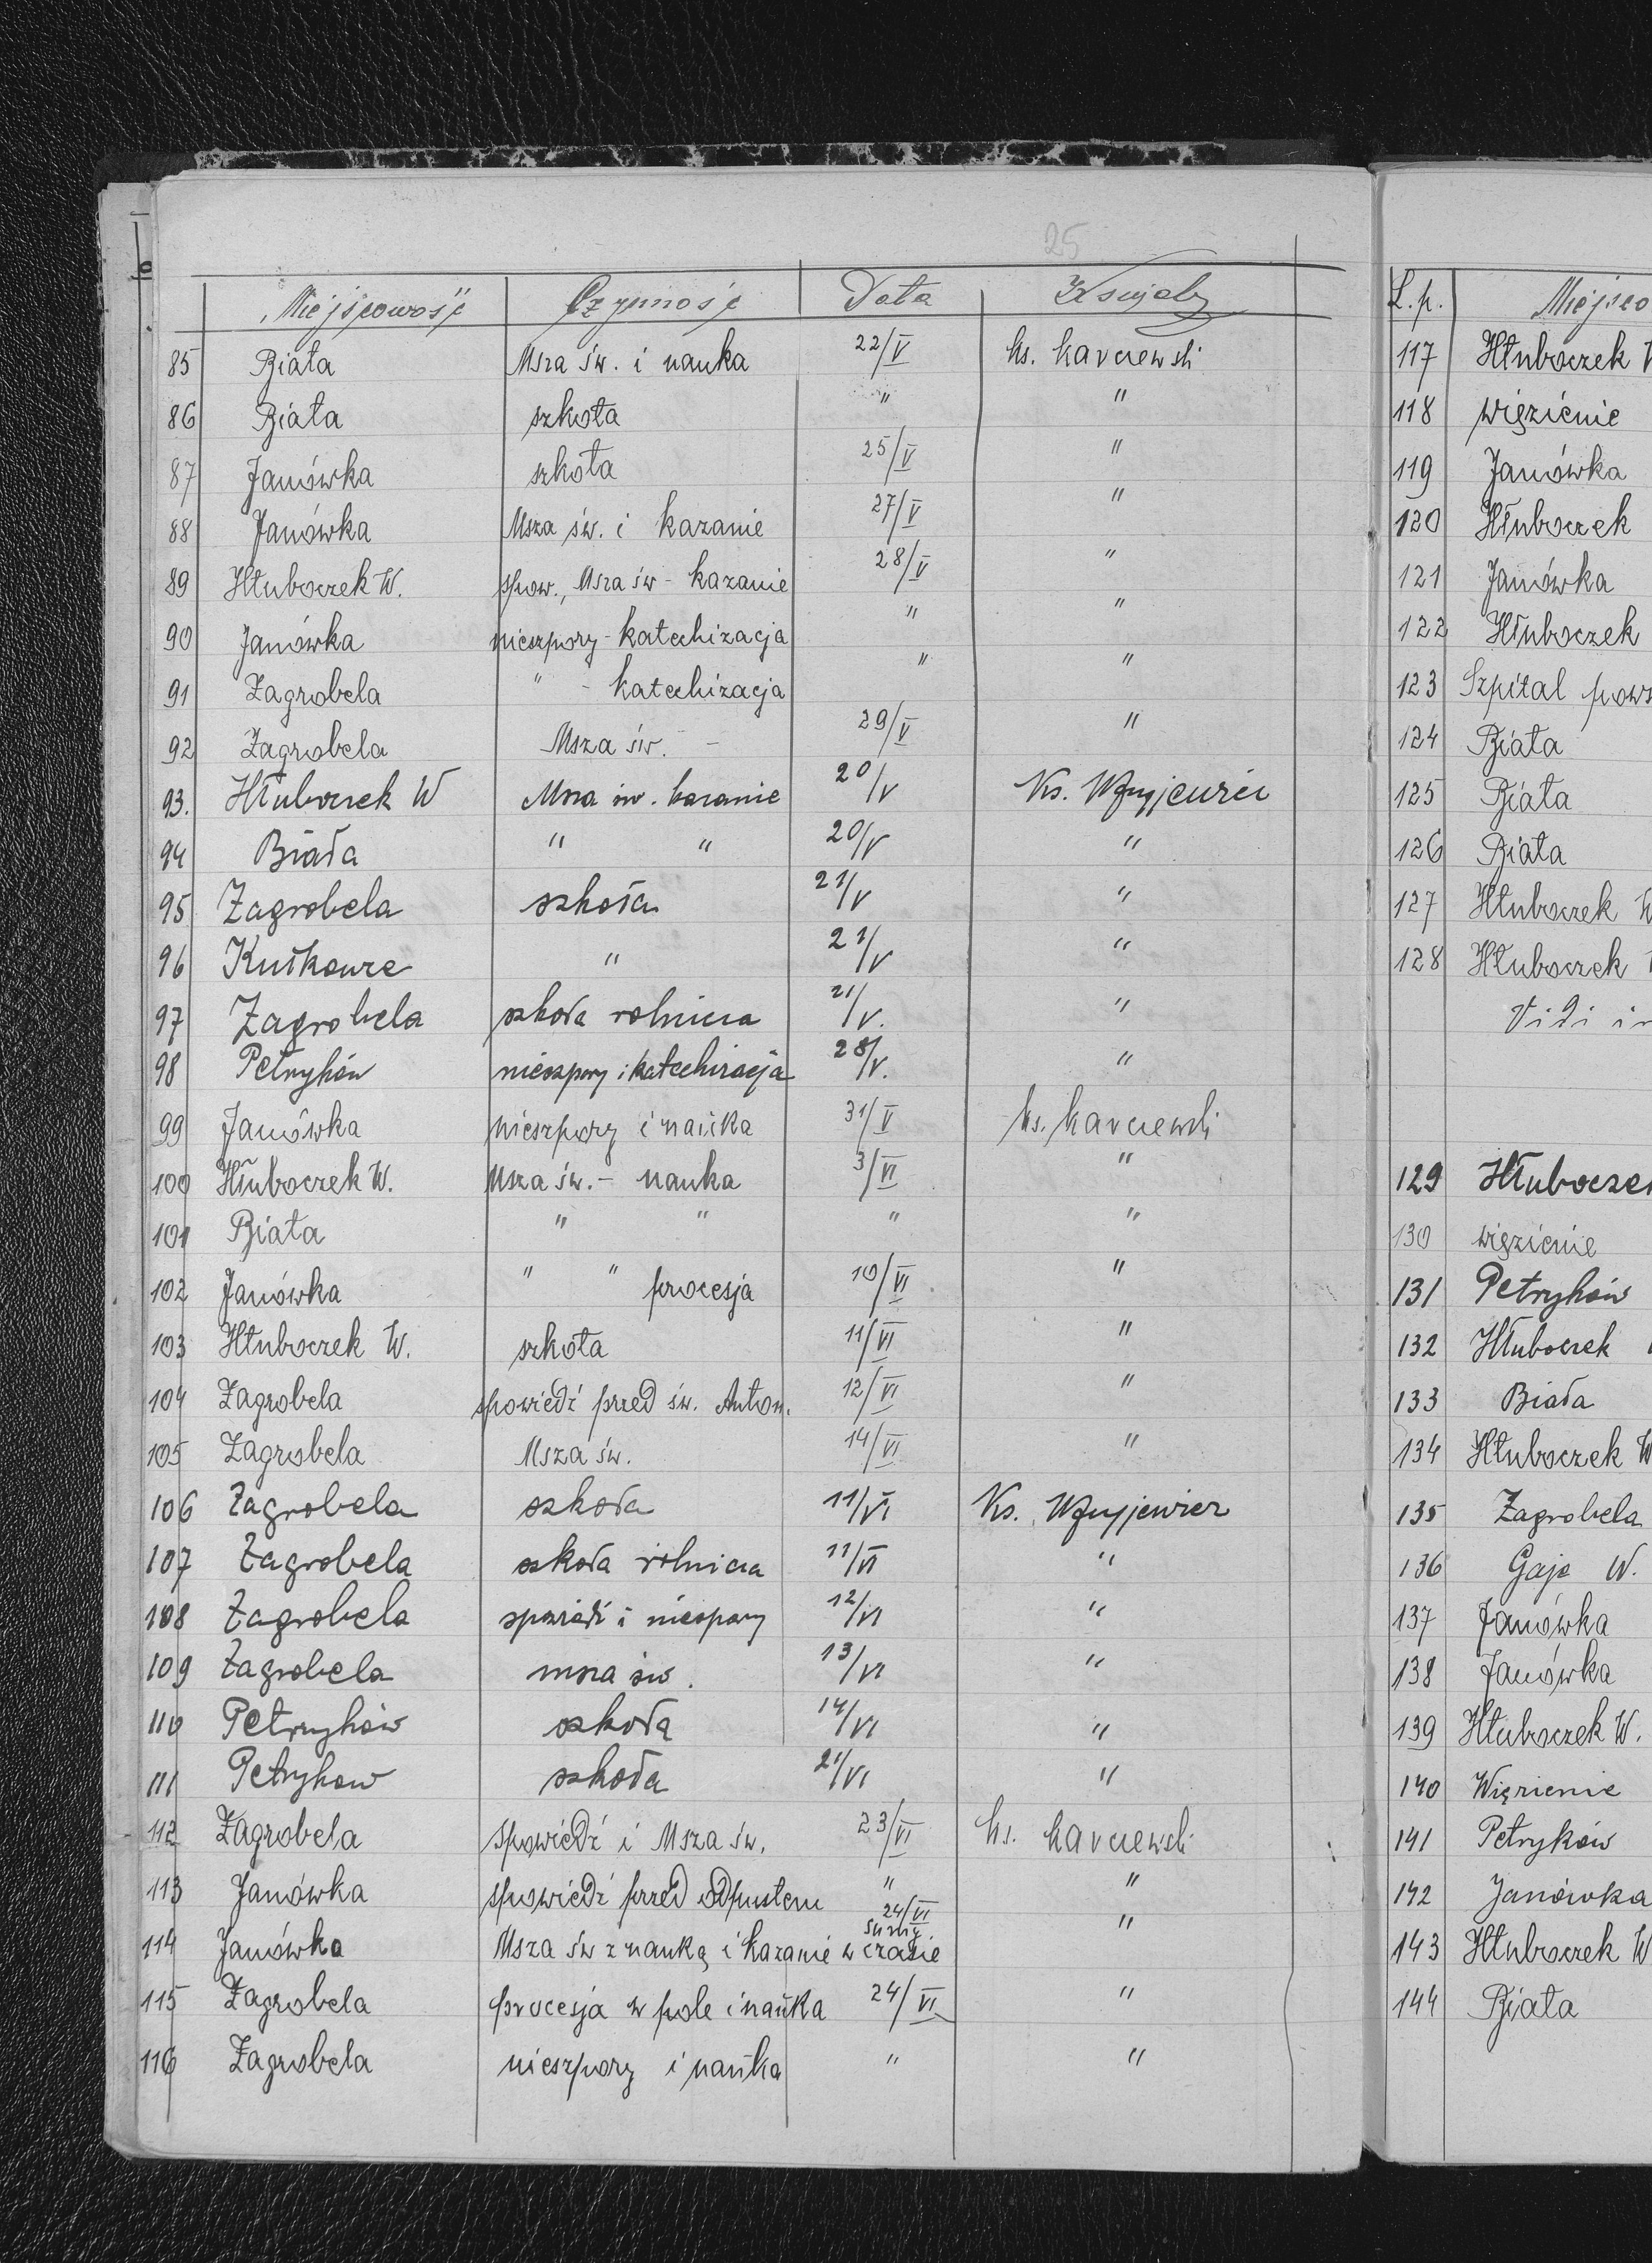 25
Miejscowość Czynność Data Książy
85 Biała Msza św. i nauka 22/V ks. Karczewski
86 Biała szkoła " "
87 Janówka szkoła 25/V "
88 Janówka Msza św. i kazanie 27/V "
89 Hłuboczek W. spow., Msza św - kazanie 28/V "
90 Janówka nieszpory - katechizacja " "
91 Zagrobela " - katechizacja " "
92 Zagrobela Msza św. - 29/V "
93. Hłuboczek W Msza św. kazanie 20/V Ks.
94 Biała " " 20/V "
95 Zagrobela szkoła 21/V "
96 Kutkowce " 21/V "
97 Zagrobela szkoła rolnicza 21/V. "
98 Petryków nieszpory i katechizacja 28/V. "
99 Janówka nieszpory i nauka 31/V ks. Karczewski
100 Hłuboczek W. Msza św. - nauka 3/VI "
101 Biała " " " "
102 Janówka " " procesja 10/VI "
103 Hłuboczek W. szkoła 11/VI "
104 Zagrobela spowiedź przed św. Anton. 12/VI "
105 Zagrobela Msza św. 14/VI "
106 Zagrobela szkoła 11/VI Ks.
107 Zagrobela szkoła rolnicza 11/VI "
108 Zagrobela spowiedź i nieszpory 12/VI "
109 Zagrobela msza św. 13/VI "
110 Petryków szkoła 14/VI "
111 Petrykow szkoła 21/VI "
112 Zagrobela spowiedź i Msza św. 23/VI ks. Karczewski
113 Janówka spowiedź przed odpustem " "
114 Janówka Msza św z nauką i kazanie w czasie sumy 24/VI "
115 Zagrobela procesja w pole i nauka 24/VI "
116 Zagrobela nieszpory i nauka " "
L.p. Miejsco
117 Hłuboczek W
118 więzienie
119 Janówka
120 Hłuboczek
121 Janówka
122 Hłuboczek
123 Szpital pows
124 Biała
125 Biała
126 Biała
127 Hłuboczek W
128 Hłuboczek
Vidi in
129 Hłubocze
130 więzienie
131 Petryków
132 Hłuboczek
133 Biała
134 Hłuboczek W
135 Zagrobela
136 Gaje W.
137 Janówka
138 Janówka
139 Hłuboczek W.
140 Więzienie
141 Petryków
142 Janówka
143 Hłuboczek W
144 Biała